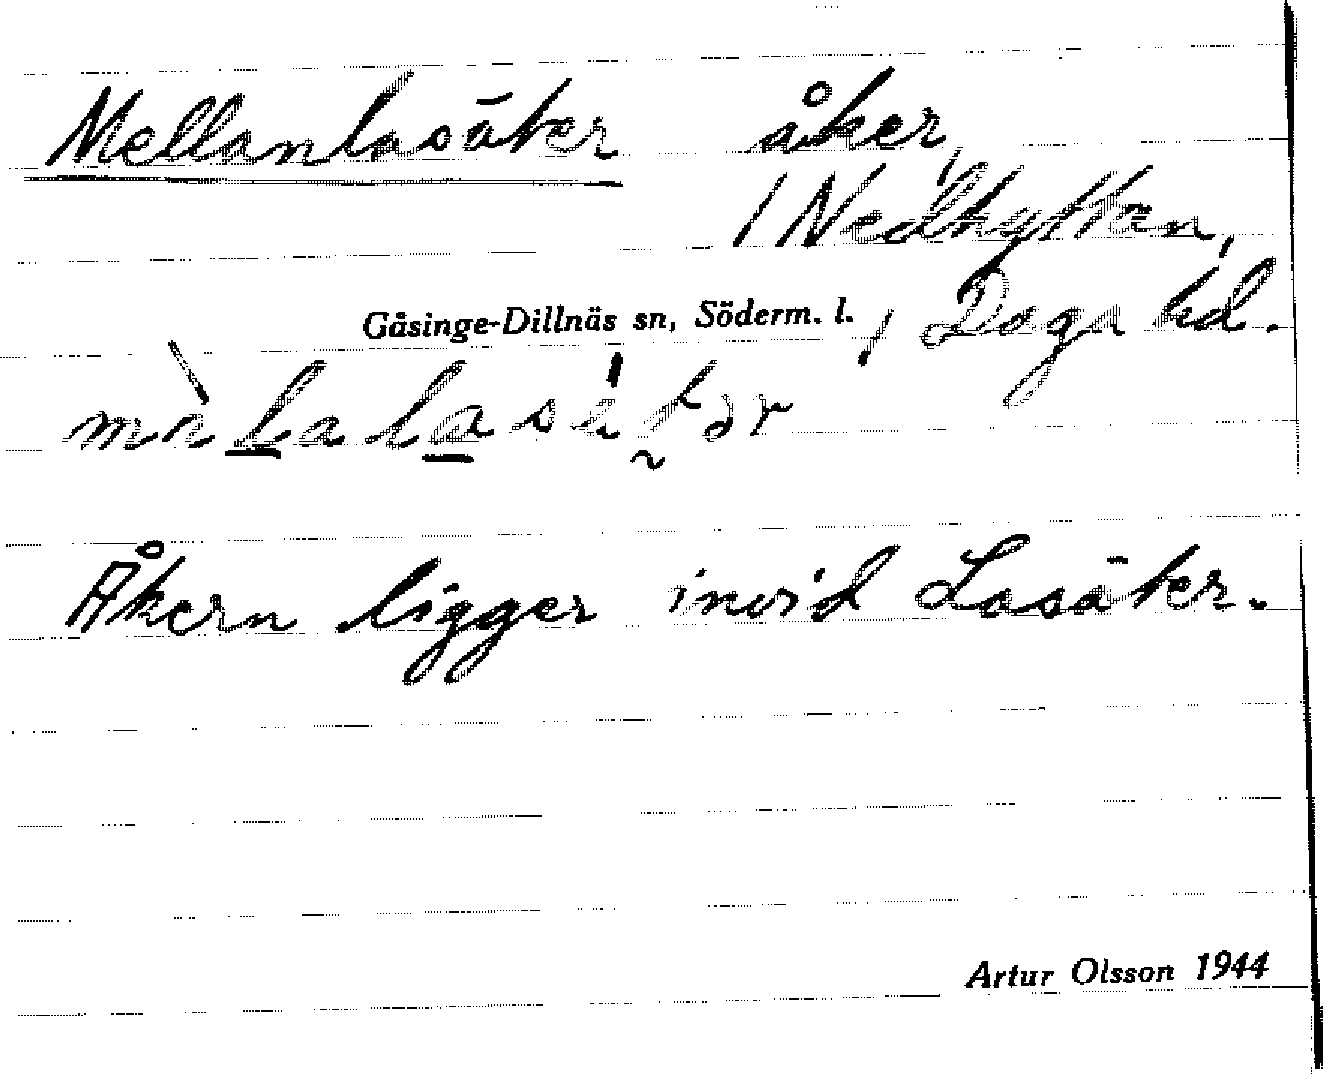 Mellanlasåker åker,
i Nedhyttan,
Gåsinge-Dillnäs sn, Söderm. l., Daga hd.
Åkern ligger invid Lasåker.
Artur Olsson 1944